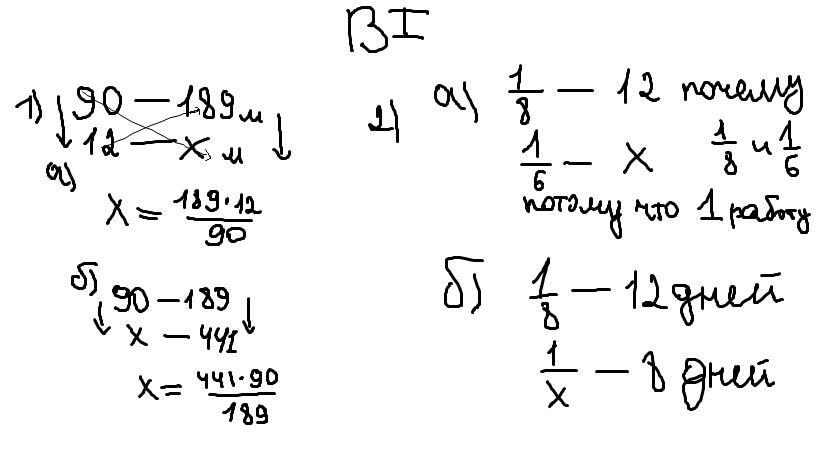 BI
1) 90 — 189 м
12 — x м
а)
x = 189·12/90
б) 90 — 189
x — 441
x = 441·90/189
2) а) 1/8 — 12 почему
1/6 — x 1/8 и 1/6
потому что 1 работу
б) 1/8 — 12 дней
1/x — 8 дней